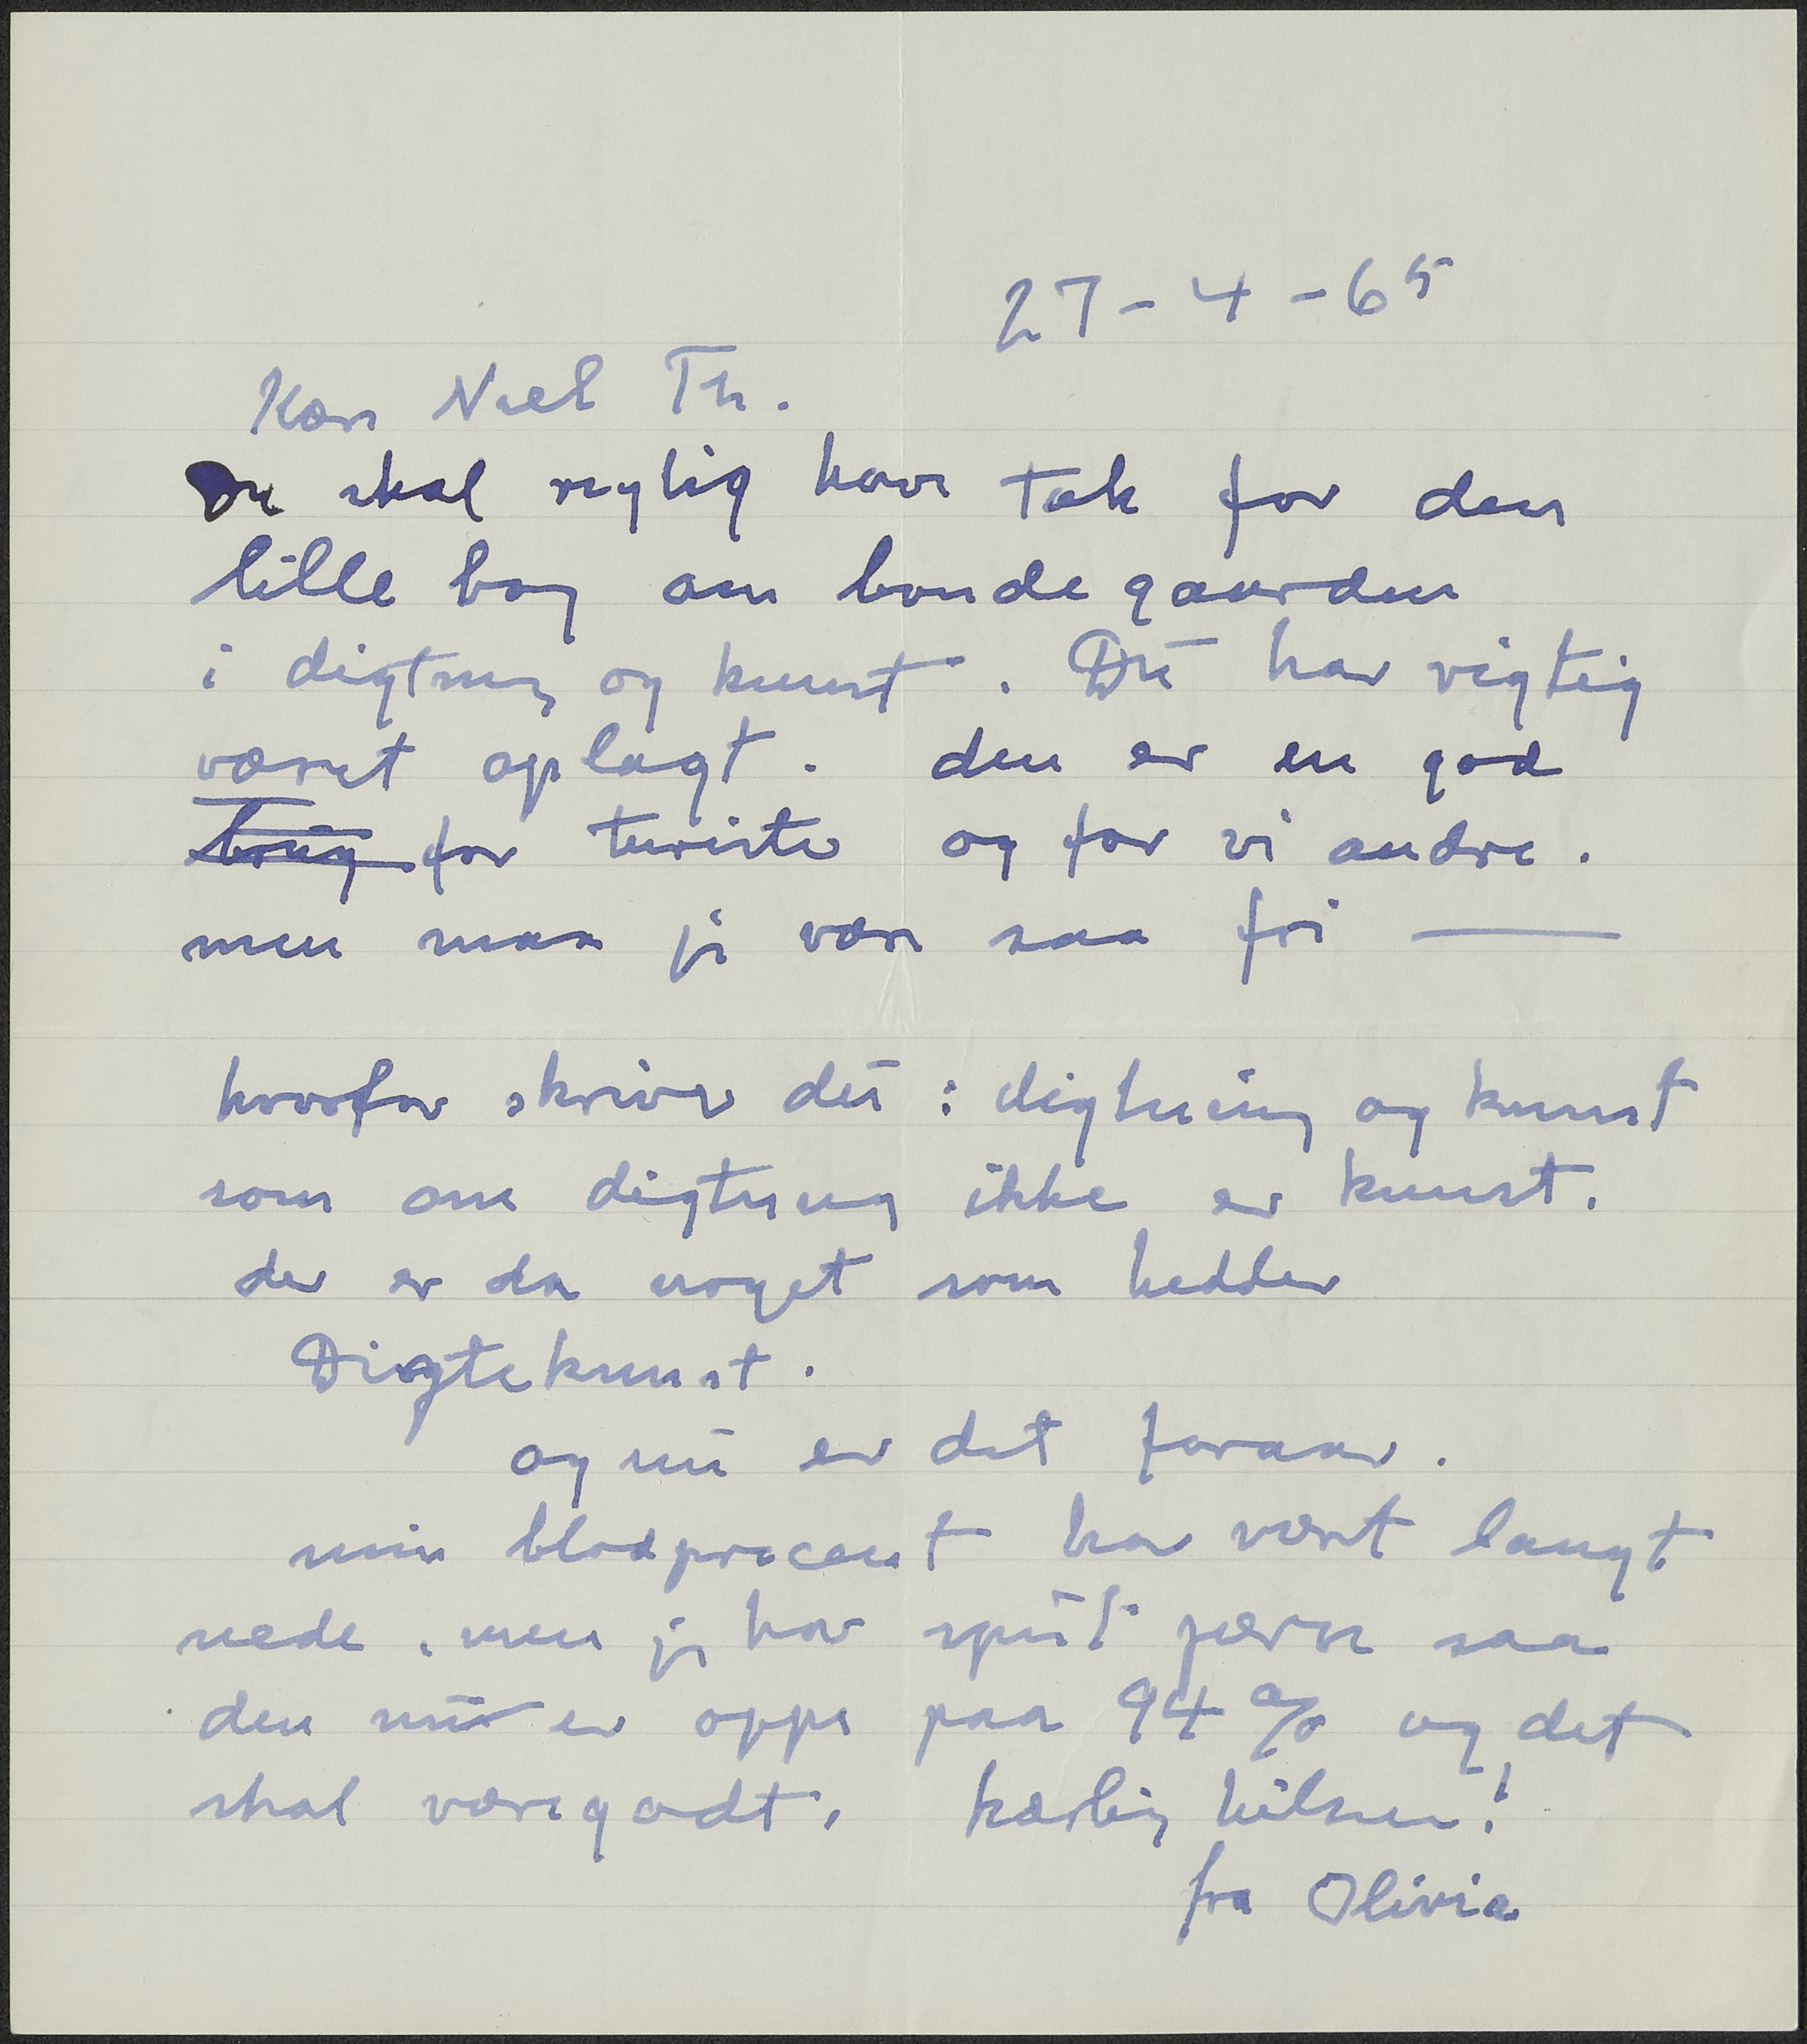 27-4-65
Kære Niels Th.
Du skal rigtig have tak for den
lille bog om bondegaarden
i digtning og kunst. Du har rigtig
været oplagt. den er en god
for turister og for vi andre.
men maa jeg være saa fri —
hvorfor skriver du: digtning og kunst
som om digtning ikke er kunst.
der er da noget som hedder
Digtekunst.
og nu er det foraar.
min blodprocent har været langt
nede. men jeg har spist jern saa
den nu er oppe paa 94 % og det
skal være godt. kærlig hilsen!
fra Olivia